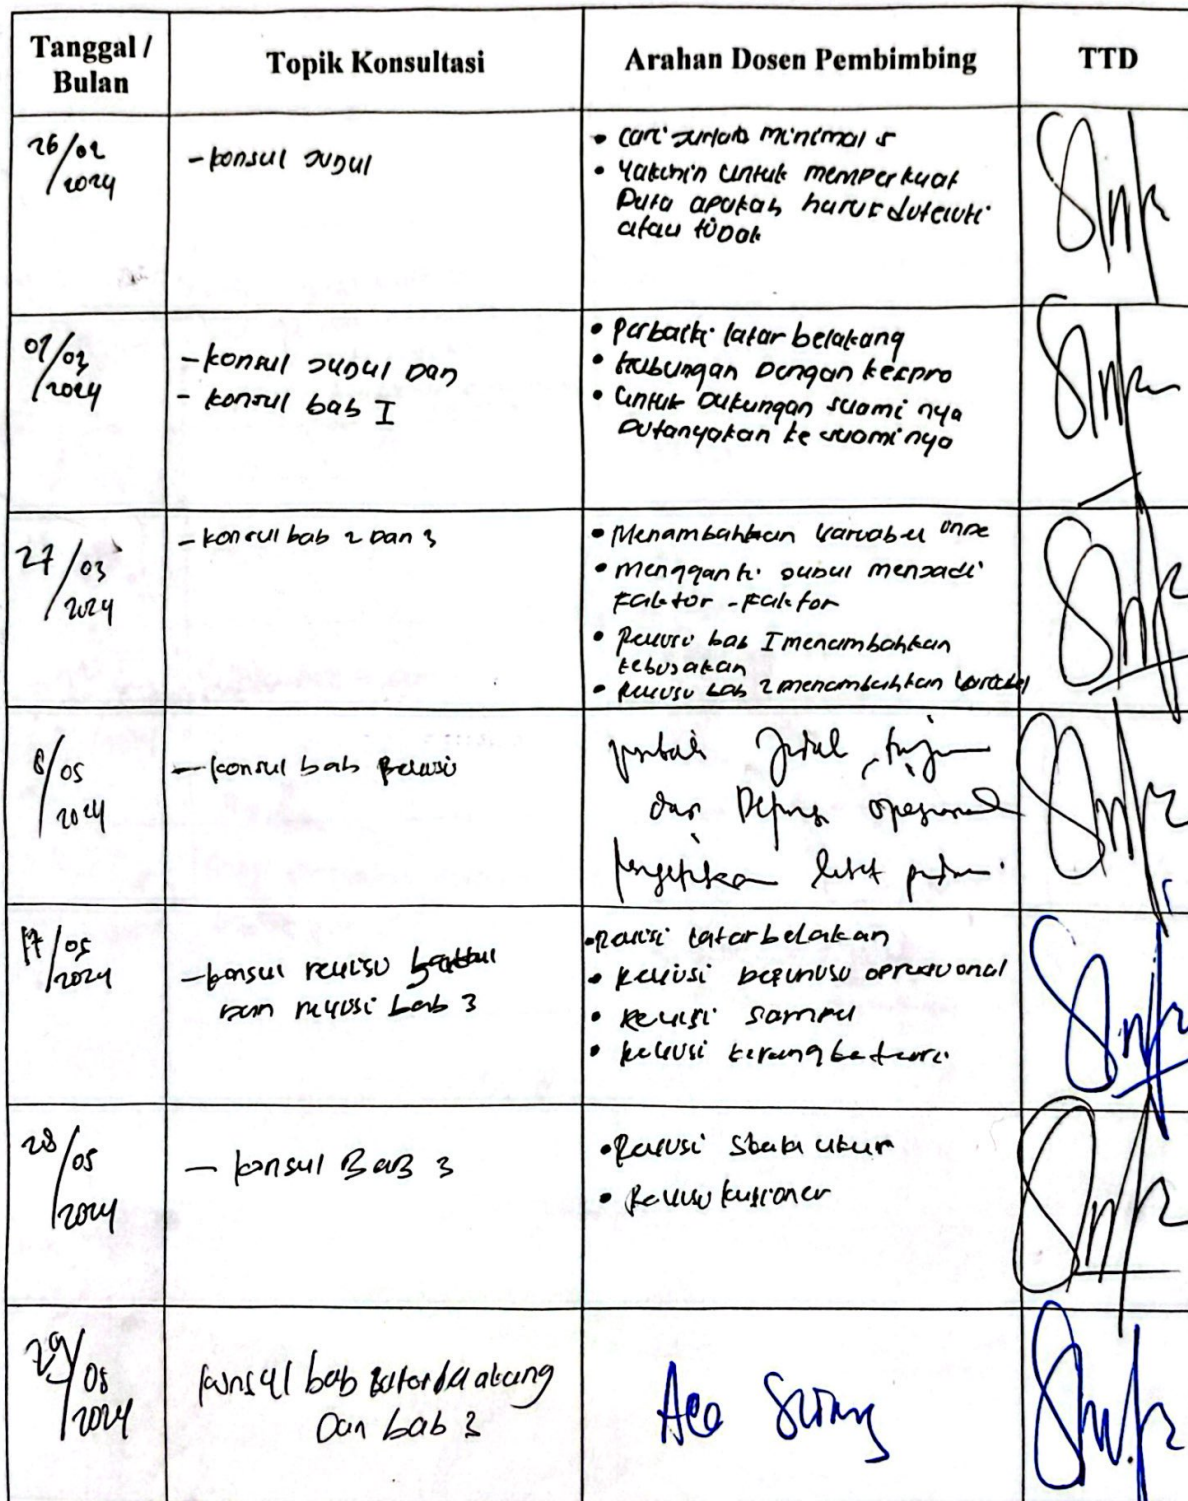 Tanggal /
Bulan
Topik Konsultasi
Arahan Dosen Pembimbing
TTD
26/02
/2024
- konsul judul
• cari jurnal minimal 5
• Yakinin untuk memperkuat
Data apakah harus diteliti
atau tidak
/03
/2024
- konsul judul Dan
- konsul bab I
• Perbaiki latar belakang
• Hubungan Dengan kespro
• Untuk Dukungan suami nya
Ditanyakan ke suami nya
27/03
/2024
- konsul bab 2 Dan 3
• Menambahkan variabel
• mengganti judul menjadi
Faktor - Faktor
• Revisi bab I menambahkan
kebijakan
• Revisi bab 2 menambahkan variabel
8/05
2024
- konsul bab Revisi
Judul, tujuan
dan Definisi operasional
pengetikan lihat
17/05
/2024
- konsul revisi
Dan revisi bab 3
• Revisi latar belakan
• Revisi Definisi oprasional
• Revisi Sampel
• Revisi kerangka teori
28/05
/2024
- konsul BAB 3
• Revisi Skala ukur
• Revisi kusioner
29/05
2024
konsul bab latar belakang
Dan bab 3
Acc Sidang